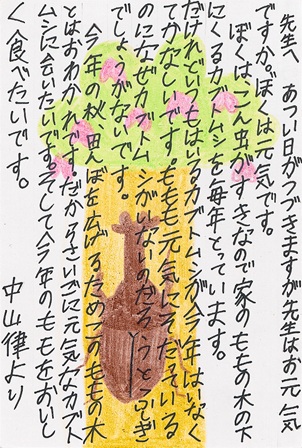 先生へ　あつい日がつづきますが先生はお元気
ですか。ぼくは元気です。
ぼくは、こん虫がすきなので家のももの木の下
にくるカブトムシを毎年とっています。
だけれどいつもはいるカブトムシが今年はいなく
てかなしいです。ももも元気にそだっている
のになぜカブトムシがいないのだろうとふしぎ
でしょうがないです。
今年の秋、田んぼを広げるためこのももの木
とはおわかれです。だからさいごに元気なカブト
ムシに会いたいです。そして今年のももをおいし
く食べたいです。
中山律より